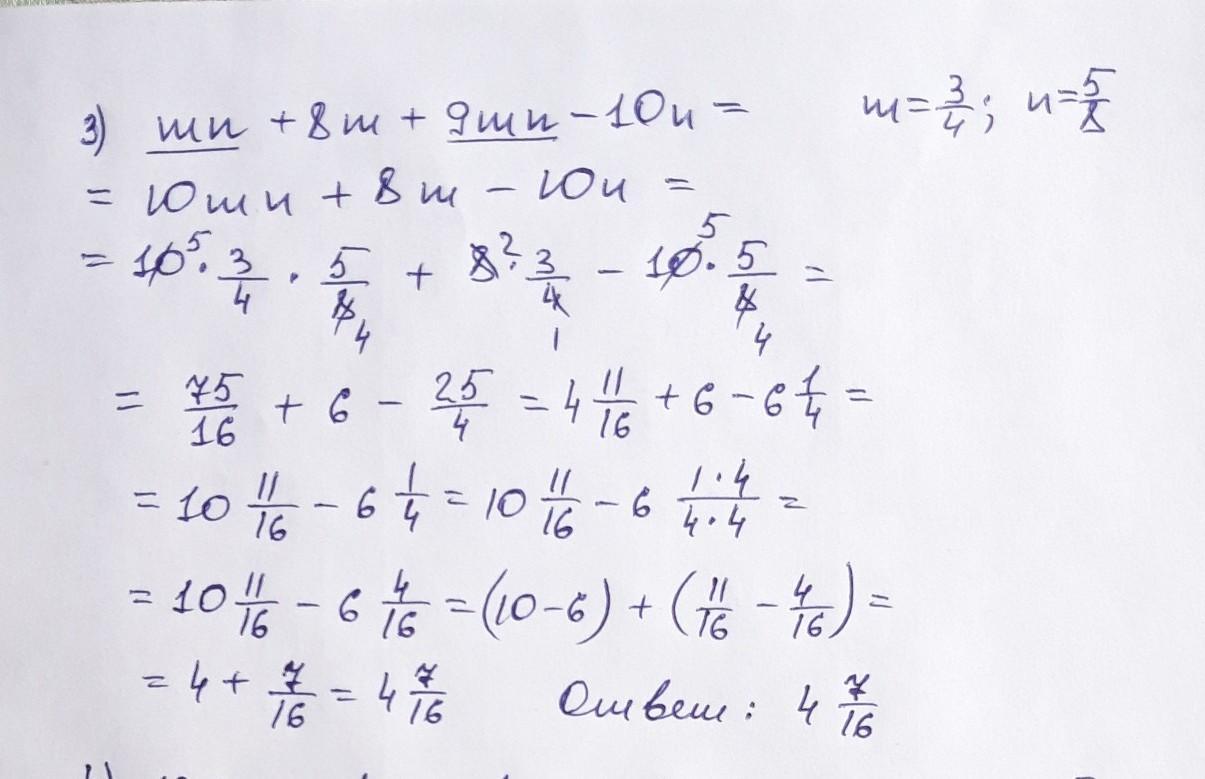 3) mn + 8m + 9mn - 10n = m = 3/4; n = 5/8
= 10mn + 8m - 10n =
= 10⁵ · 3/4 · 5/8₄ + 8² · 3/4₁ - 10⁵ · 5/8₄ =
= 75/16 + 6 - 25/4 = 4 11/16 + 6 - 6 1/4 =
= 10 11/16 - 6 1/4 = 10 11/16 - 6 1·4/4·4 =
= 10 11/16 - 6 4/16 = (10-6) + (11/16 - 4/16) =
= 4 + 7/16 = 4 7/16 Ответ: 4 7/16